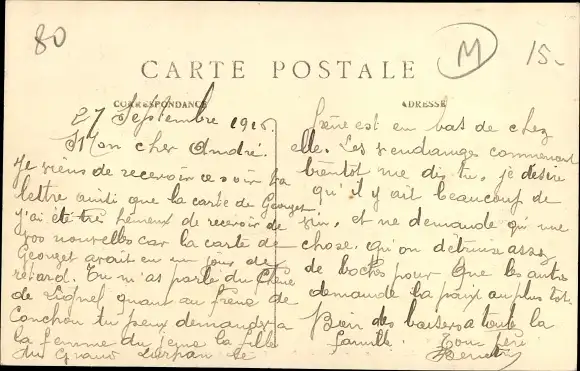 80
M
15.-
CARTE POSTALE
CORRESPONDANCE
ADRESSE
27 Septembre 1915.
Mon cher André.
Je viens de recevoir ce soir ta
lettre ainsi que la carte de Georget
j'ai été très heureux de recevoir de
vos nouvelles car la carte de
Georget avait eu un jour de
retard. Tu m'as parlé du Chêne
de quant au frêne de
Conchou tu peux demander a
la femme du jeune la fille
du Grand le
frêne est en bas de chez
elle. Les vendanges commencent
bientôt me dis tu, je désire
qu'il y ait beaucoup de
vin, et ne demande qu'une
chose, qu'on détruise assez
de boches pour que les autres
demande la paix au plus tôt.
Bien des baisers a toute la
famille. Ton frère